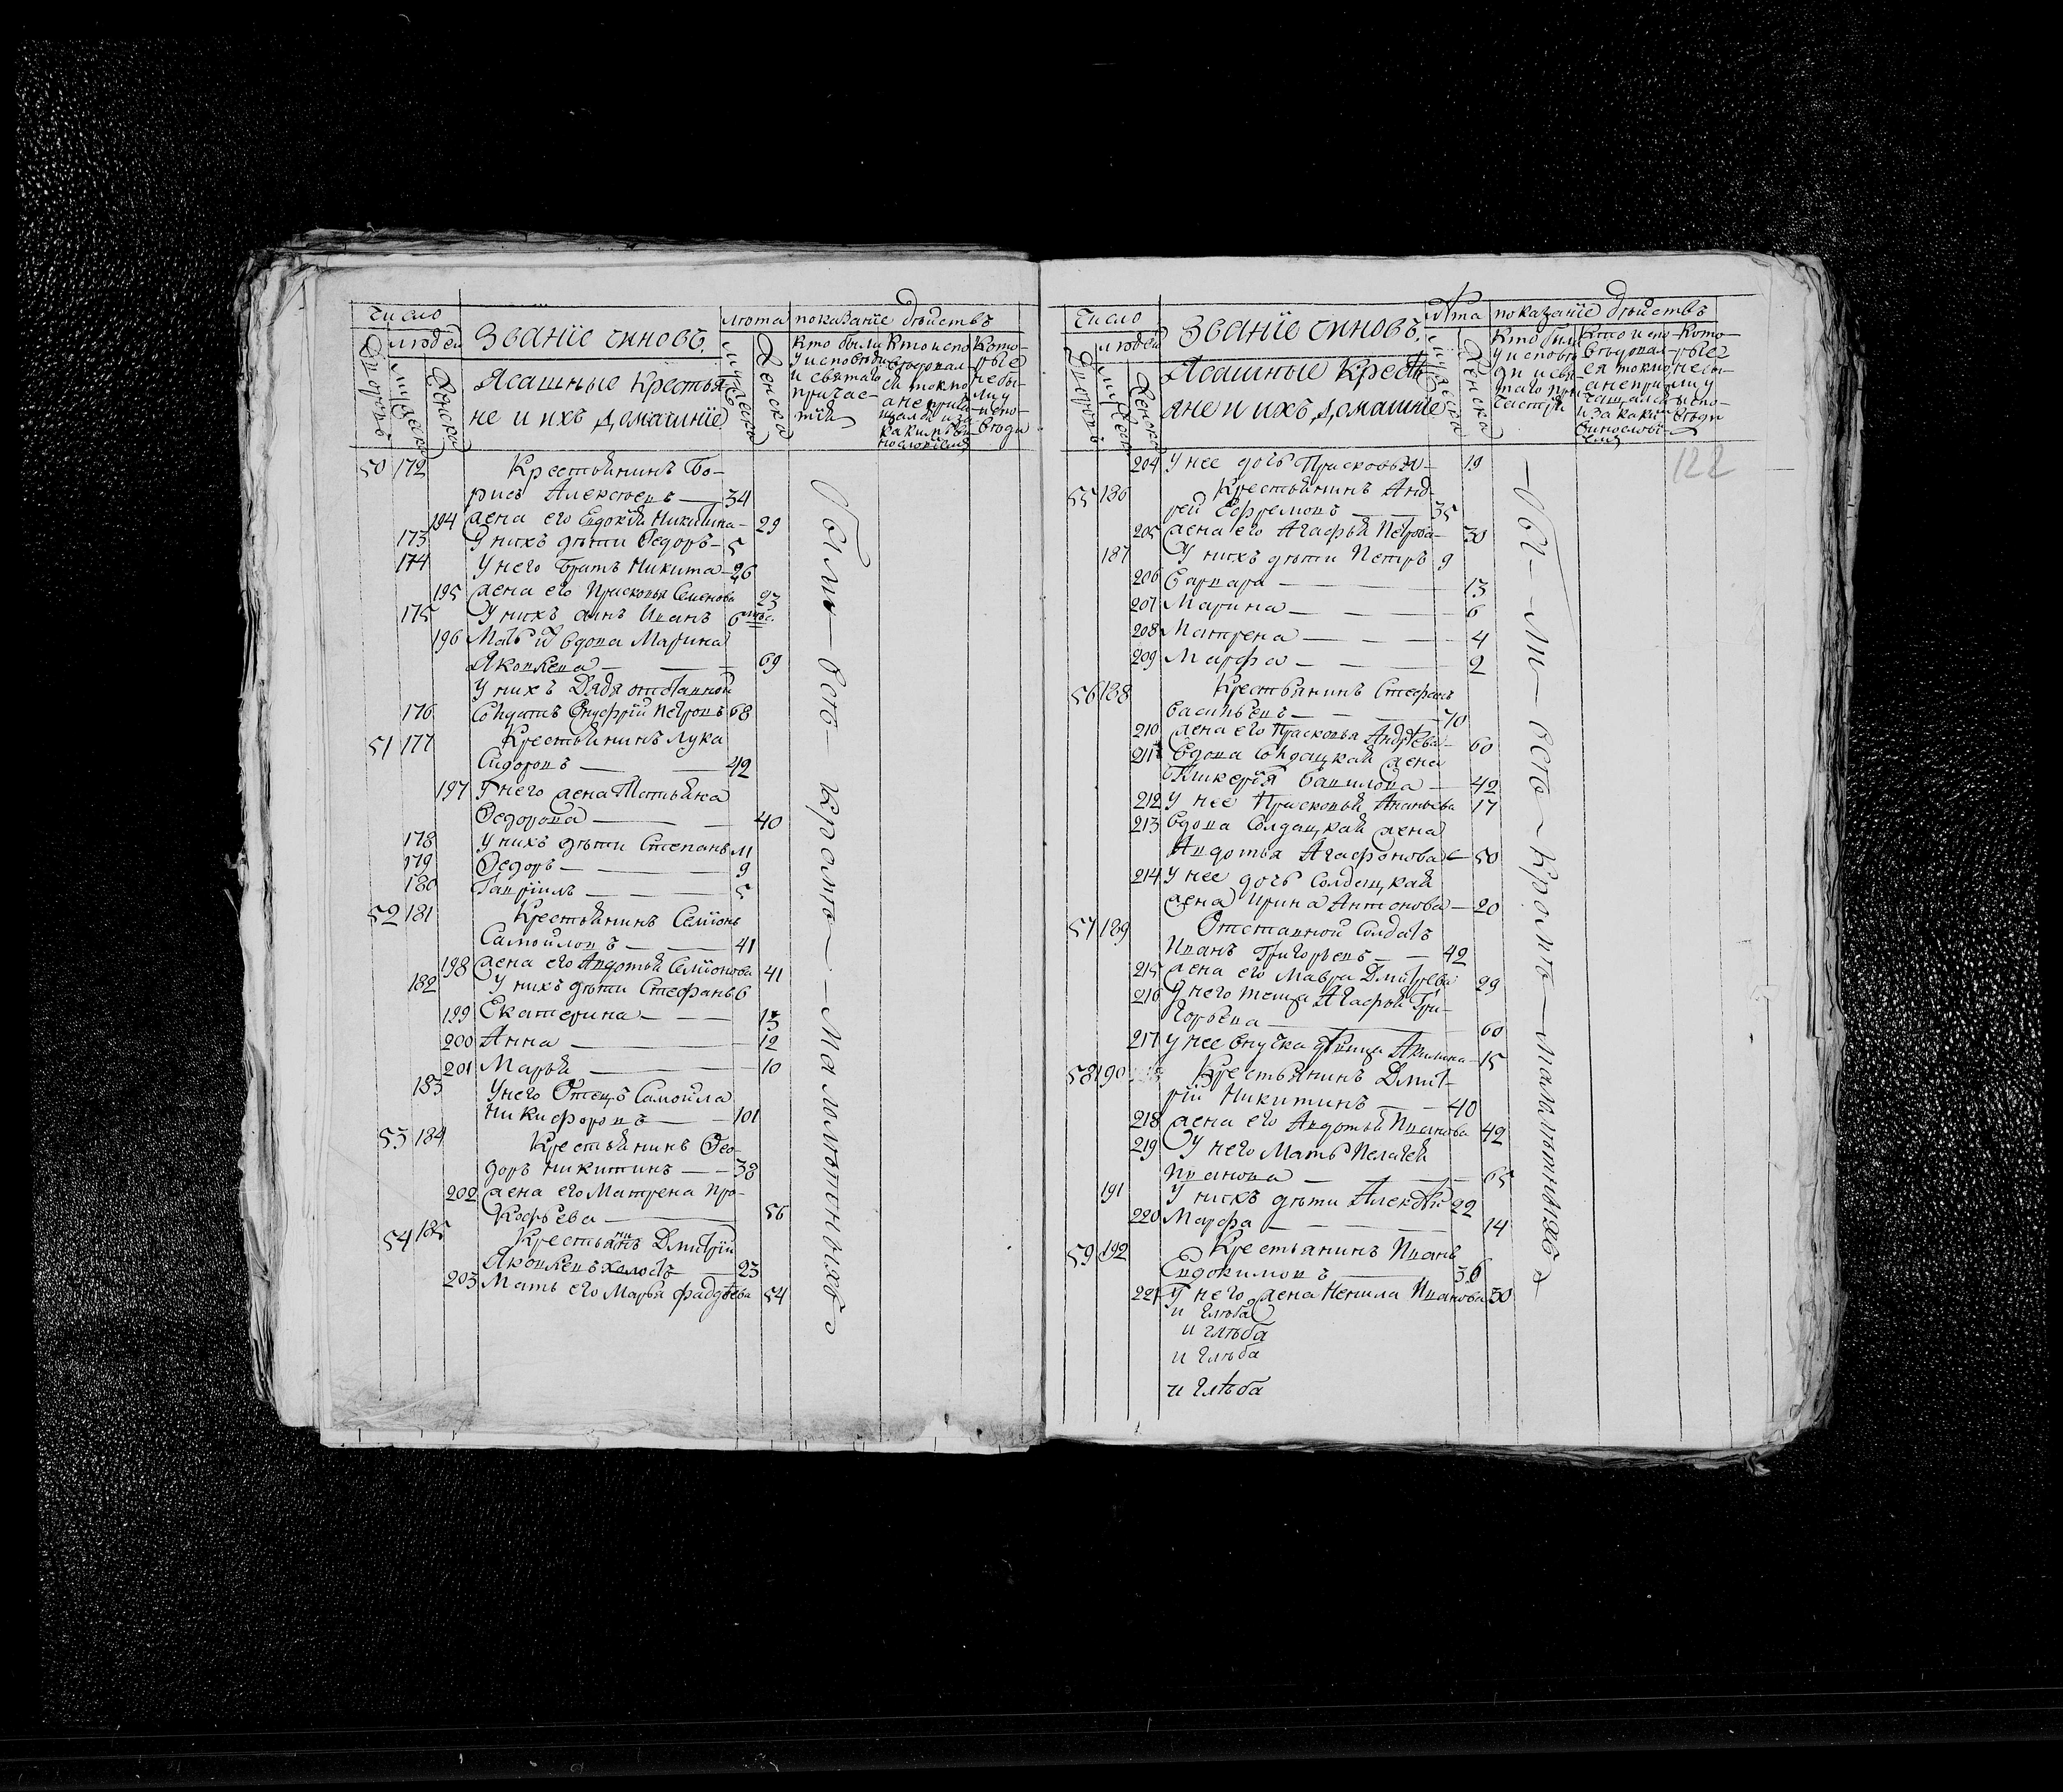 Число
людей
Дворовъ
мужеска
Женска
Званіе чиновъ.
Ясашные Крестья
не и ихъ домашніе
лѣта
мужеска
Женска
показаніе дѣйствъ
Кто были
у исповѣди
и святаго
причас-
тія
Кто испо
вѣдовал
ся токмо
а не прича
щался и за
какимъ ви
нословіемъ
Кото-
рые
не бы-
ли у
испо-
вѣди
50 172 Крестьянинъ Бо-
рисъ Алексѣевъ — 34
194 жена его Евдокия Никитина — 29
173 У нихъ дѣти Ѳедоръ — 5
174 У него братъ Никита — 26
195 жена его Прасковья Семенова 23
175 У нихъ сынъ Иванъ 6 мѣс.
196 Мать их вдова Марина
Яковлева — — 69
У нихъ Дядя отставной
176 Солдатъ Онуфрій Петровъ 68
51 177 Крестьянинъ Лука
Сидоровъ — — 42
197 У него жена Татьяна
Ѳедорова — — 40
178 У нихъ дѣти Степанъ 11
179 Ѳедоръ — — 9
180 Гаврiилъ — — 5
52 181 Крестьянинъ Семіонъ
Самойловъ — — 41
198 жена его Авдотья Семіонова 41
182 У нихъ дѣти Стефанъ 6
199 Екатерина — — 13
200 Анна — 12
201 Марья — 10
183 У него Отецъ Самойла
Никифоровъ — 101
53 184 Крестьянинъ Ѳео-
доръ Никитинъ — — 38
202 жена его Матрена Про-
кофьева — 56
54 185 Крестьянинъ Дмитрій
Яковлевъ холостъ — 23
203 Мать его Марья Фаддѣева 54
Были — всѣ — кромѣ — Малолѣтныхъ
Число
людей
Дворовъ
мужеска
Женска
Званіе чиновъ.
Ясашные Кресть
яне и ихъ домашніе
Лѣта
мужеска
Женска
показаніе дѣйствъ
Кто были
у исповѣ
ди и свя
таго при
частія
Кто испо
вѣдовал
ся токмо
а не при
чащался
и за каким
винослові
емъ
Кото-
рые
не бы-
ли у
испо-
вѣди
122
204 У нее дочь Прасковья — 19
55 186 Крестьянинъ Анд-
рей Ефремовъ — — 35
205 жена его Агафья Петрова — 30
187 У нихъ дѣти Петръ 9
206 Варвара — — 13
207 Марина — — 6
208 Матрена — — 4
209 Марфа — — 2
56 188 Крестьянинъ Стефанъ
Васильевъ — — 70
210 жена его Прасковья Андрѣева — 60
211 Вдова Солдацкая жена
Гликерія Вавилова — 42
212 У нее Прасковья Ананьева 17
213 Вдова Солдацкая жена
Авдотья Агафонова — 50
214 У нее дочь Солдацкая
жена Ирина Антонова — 20
57 189 Отставной Солдатъ
Иванъ Григорьевъ — — 42
215 жена его Мавра Дмитрѣева 29
216 У него теща Агафья Гри-
горьева — 60
217 У нее внучка дѣвица Акилина — 15
58 190 Крестьянинъ Дмит-
рій Никитинъ — — 40
218 жена его Авдотья Иванова 42
219 У него Мать Пелагея
Иванова — — 65
191 У нихъ дѣти Алексѣй 22
220 Марфа — — 14
59 192 Крестьянинъ Иванъ
Евдокимовъ — 36
221 У него жена Ненила Иванова 30
и Глѣба
и глѣба
и Глѣба
и Глѣба
— Бы — ли — всѣ — кромѣ — малолѣтныхъ